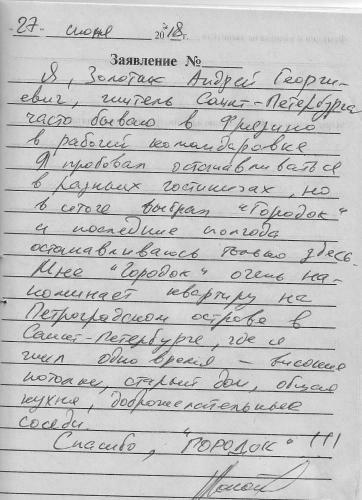 27 июня 2018 г.
Заявление №
Я, Золотых Андрей Георги-
евич, житель Санкт-Петербурга
часто бываю в Фрязино
в рабочей командировке
Я пробовал останавливаться
в разных гостиницах, но
в итоге выбрал "Городок"
и последние полгода
останавливаюсь только здесь.
Мне "Городок" очень на-
поминает квартиру на
Петроградском острове в
Санкт-Петербурге, где я
жил одно время - высокие
потолки, старый дом, общая
кухня, доброжелательные
соседи.
Спасибо, "ГОРОДОК" !!!